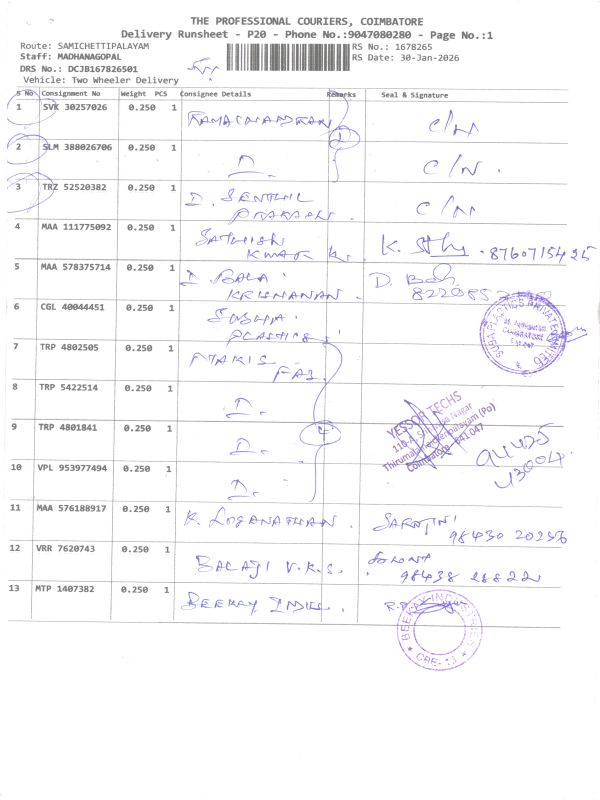 THE PROFESSIONAL COURIERS, COIMBATORE
Delivery Runsheet - P20 - Phone No.:9047080280 - Page No.:1
Route: SAMICHETTIPALAYAM RS No.: 1678265
Staff: MADHANAGOPAL RS Date: 30-Jan-2026
DRS No.: DCJB167826501
Vehicle: Two Wheeler Delivery
S No Consignment No Weight PCS Consignee Details Remarks Seal & Signature
1 SVK 30257026 0.250 1 RAMACHANDRAN C/N
2 SLM 388026706 0.250 1 D. C/N.
3 TRZ 52520382 0.250 1 D. SENTHIL PRAKASH. C/N
4 MAA 111775092 0.250 1 SATHISH KUMAR K. K. 8760715425
5 MAA 578375714 0.250 1 D. BALA KRISHNANAN. D.
6 CGL 40044451 0.250 1 PLASTICS
SUBA PLASTICS PRIVATE LIMITED
7 TRP 4802505 0.250 1 FAB.
8 TRP 5422514 0.250 1 D.
9 TRP 4801841 0.250 1 D. 4
YESSOR TECHS
Coimbatore - 641 047
10 VPL 953977494 0.250 1 D.
11 MAA 576188917 0.250 1 K. LOGANATHAN. SAROJINI
12 VRR 7620743 0.250 1 BALAJI V.K.S. 98438
13 MTP 1407382 0.250 1 BEEKAY INDUS.
BEEKAY INDUSTRIES
CBE - 13